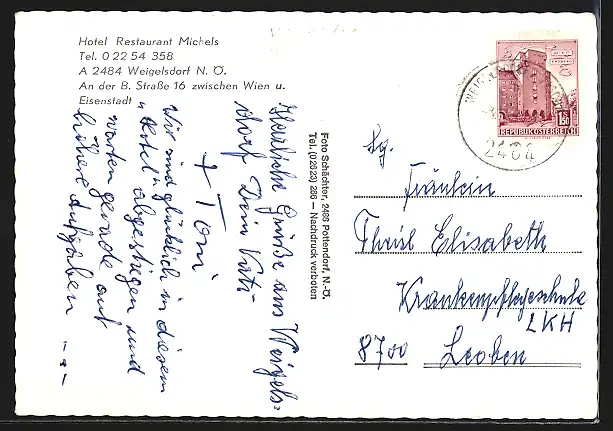 Hotel Restaurant Michels
Tel. 0 22 54 358
A 2484 Weigelsdorf N. Ö.
An der B. Straße 16 zwischen Wien u.
Eisenstadt
Herzliche Grüße aus Weigels-
dorf Dein Vati
+ Toni
Wir sind glücklich in diesem
Hotel abgestiegen und
warten gerade auf
höhere Aufgaben - - -
Foto Schächter, 2486 Pottendorf, N.-Ö.
Tel. (0 26 23) 286 — Nachdruck verboten
REPUBLIK ÖSTERREICH
1.50
2484
Fräulein
Theisl Elisabeth
Krankenpflegeschule
LKH
8700 Leoben